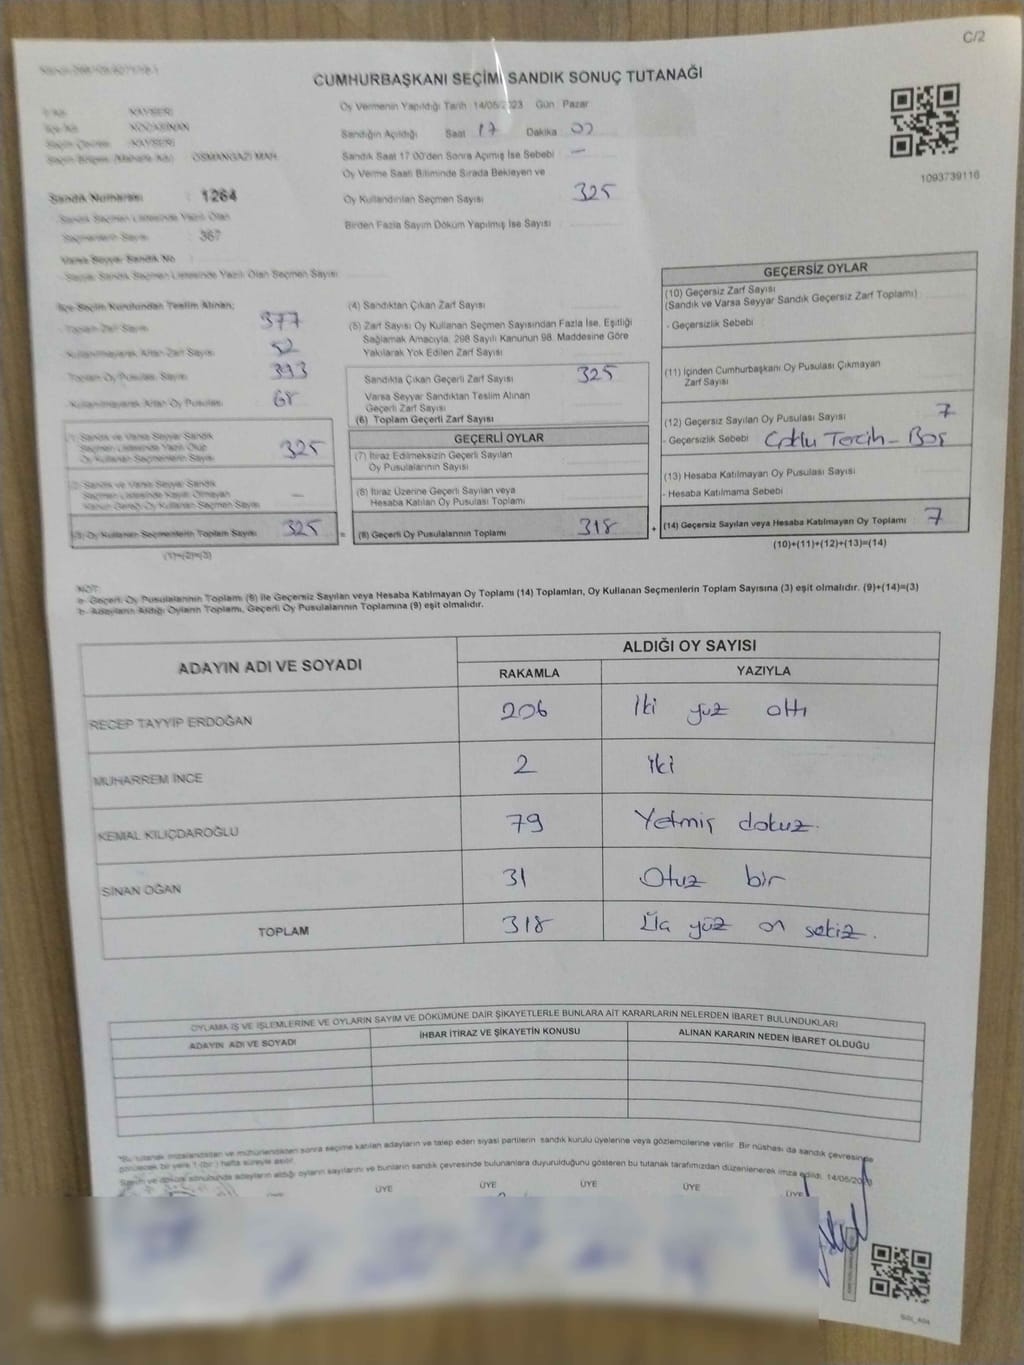 C/2
CUMHURBAŞKANI SEÇİMİ SANDIK SONUÇ TUTANAĞI
KAYSERİ
KOCASİNAN
KAYSERİ
OSMANGAZİ MAH.
Sandık Numarası : 1264
Sandık Seçmen Listesinde Yazılı Olan
Seçmenlerin Sayısı : 367
Varsa Seyyar Sandık No
Seyyar Sandık Seçmen Listesinde Yazılı Olan Seçmen Sayısı
Oy Vermenin Yapıldığı Tarih 14/05/2023 Gün Pazar
Sandığın Açıldığı Saat 17 Dakika 00
Sandık Saat 17:00'den Sonra Açımış İse Sebebi —
Oy Verme Saati Bitiminde Sırada Bekleyen ve
Oy Kullandırılan Seçmen Sayısı 325
Birden Fazla Sayım Döküm Yapılmış İse Sayısı
1093739116
İlçe Seçim Kurulundan Teslim Alınan;
- Toplam Zarf Sayısı 377
- Kullanılmayarak Artan Zarf Sayısı 52
- Toplam Oy Pusulası Sayısı 393
- Kullanılmayarak Artan Oy Pusulası 68
(1) Sandık ve Varsa Seyyar Sandık
Seçmen Listesinde Yazılı Olup
Oy Kullanan Seçmenlerin Sayısı 325
(2) Sandık ve Varsa Seyyar Sandık
Seçmen Listesinde Kayıtlı Olmayan
Kanun Gereği Oy Kullanan Seçmen Sayısı —
(3) Oy Kullanan Seçmenlerin Toplam Sayısı 325 =
(1)+(2)=(3)
(4) Sandıktan Çıkan Zarf Sayısı
(5) Zarf Sayısı Oy Kullanan Seçmen Sayısından Fazla İse, Eşitliği
Sağlamak Amacıyla, 298 Sayılı Kanunun 98. Maddesine Göre
Yakılarak Yok Edilen Zarf Sayısı
Sandıkta Çıkan Geçerli Zarf Sayısı 325
Varsa Seyyar Sandıktan Teslim Alınan
Geçerli Zarf Sayısı
(6) Toplam Geçerli Zarf Sayısı
GEÇERLİ OYLAR
(7) İtiraz Edilmeksizin Geçerli Sayılan
Oy Pusulalarının Sayısı
(8) İtiraz Üzerine Geçerli Sayılan veya
Hesaba Katılan Oy Pusulası Toplamı
(9) Geçerli Oy Pusulalarının Toplamı 318 +
GEÇERSİZ OYLAR
(10) Geçersiz Zarf Sayısı
(Sandık ve Varsa Seyyar Sandık Geçersiz Zarf Toplamı)
- Geçersizlik Sebebi
(11) İçinden Cumhurbaşkanı Oy Pusulası Çıkmayan
Zarf Sayısı
(12) Geçersiz Sayılan Oy Pusulası Sayısı 7
- Geçersizlik Sebebi Çoklu Tercih - Boş
(13) Hesaba Katılmayan Oy Pusulası Sayısı
- Hesaba Katılmama Sebebi
(14) Geçersiz Sayılan veya Hesaba Katılmayan Oy Toplamı 7
(10)+(11)+(12)+(13)=(14)
NOT:
a- Geçerli Oy Pusulasının Toplamı (9) ile Geçersiz Sayılan veya Hesaba Katılmayan Oy Toplamı (14) Toplamları, Oy Kullanan Seçmenlerin Toplam Sayısına (3) eşit olmalıdır. (9)+(14)=(3)
b- Adayların Aldığı Oyların Toplamı, Geçerli Oy Pusulalarının Toplamına (9) eşit olmalıdır.
ADAYIN ADI VE SOYADI
ALDIĞI OY SAYISI
RAKAMLA YAZIYLA
RECEP TAYYİP ERDOĞAN 206 İki yüz altı
MUHARREM İNCE 2 iki
KEMAL KILIÇDAROĞLU 79 Yetmiş dokuz.
SİNAN OĞAN 31 Otuz bir
TOPLAM 318 Üç yüz on sekiz.
OYLAMA İŞ VE İŞLEMLERİNE VE OYLARIN SAYIM VE DÖKÜMÜNE DAİR ŞİKAYETLERLE BUNLARA AİT KARARLARIN NELERDEN İBARET BULUNDUKLARI
ADAYIN ADI VE SOYADI İHBAR İTİRAZ VE ŞİKAYETİN KONUSU ALINAN KARARIN NEDEN İBARET OLDUĞU
*Bu tutanak imzalandıktan ve mühürlendikten sonra seçime katılan adayların ve talep eden siyasi partilerin sandık kurulu üyelerine veya gözlemcilerine verilir. Bir nüshası da sandık çevresinde
görülecek bir yere 1 (bir) hafta süreyle asılır.
Sayım ve döküm sonubunda adayların aldığı oyların sayılarını ve bunların sandık çevresinde bulunanlara duyurulduğunu gösteren bu tutanak tarafımızdan düzenlenerek imza edildi. 14/05/2023
ÜYE ÜYE ÜYE ÜYE ÜYE